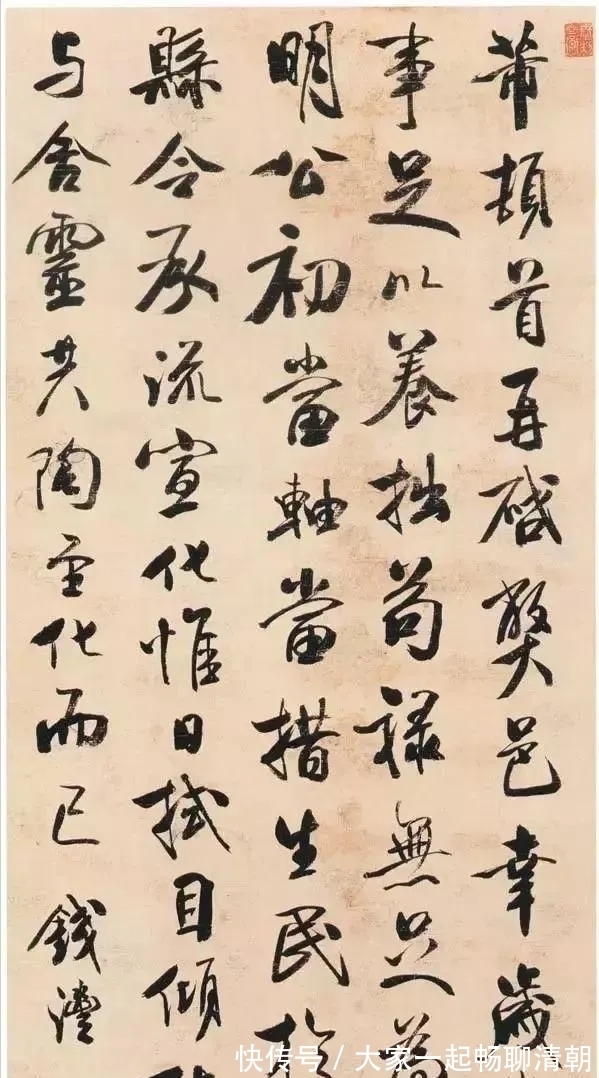 芾頓首再啓弊邑幸歲
事足以養拙苟祿無足為
明公初當軸當措生民於
縣令承流宣化惟日拭目傾
与含靈共陶至化而已 錢灃
快传号 / 大家一起畅聊清朝